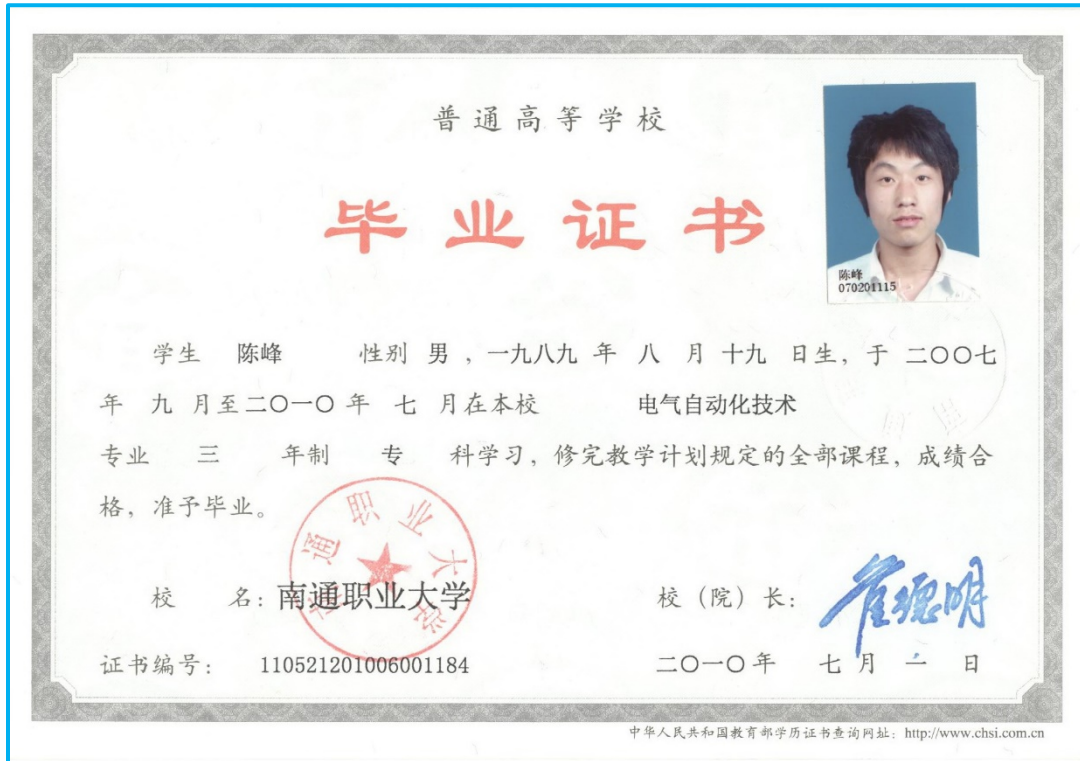 普通高等学校
毕业证书
陈峰
070201115
学生 陈峰 性别 男 ，一九八九 年 八 月 十九 日生，于 二〇〇七
年 九 月至二〇一〇 年 七 月在本校 电气自动化技术
专业 三 年制 专 科学习，修完教学计划规定的全部课程，成绩合
格，准予毕业。
校 名：南通职业大学
校（院）长：
证书编号： 110521201006001184
二〇一〇年 七 月 一 日
中华人民共和国教育部学历证书查询网址：http://www.chsi.com.cn